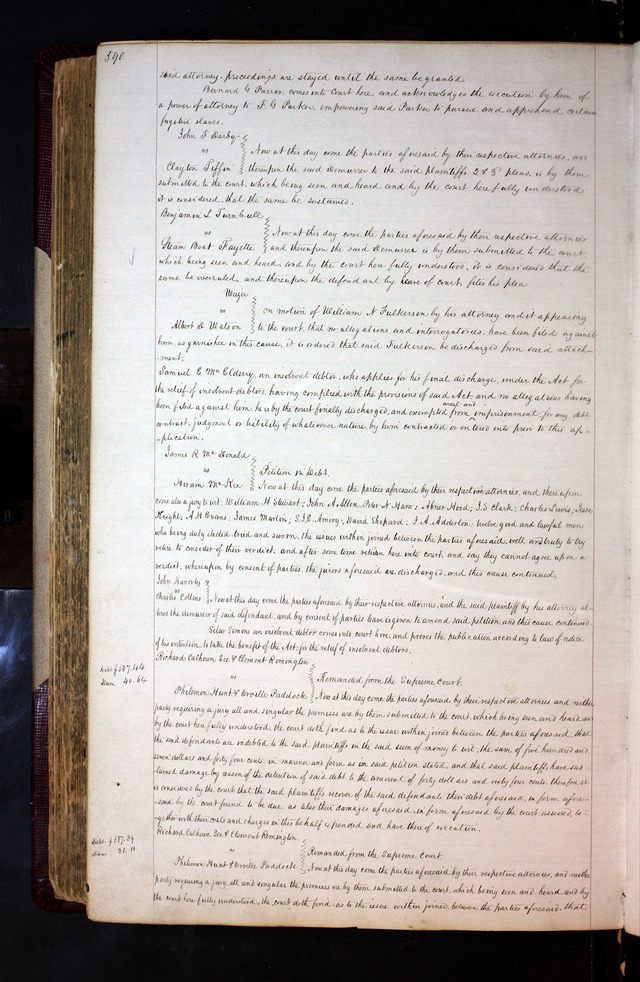 590
said attorney. proceedings are stayed until the same be granted.
Bernard G Farrar comes into Court here and acknowledges the execution by him of
a power of attorney to F. G Parker, empowering said Parker to pursue and apprehend certain
fugitive slaves.
John F Darby
vs
Clayton Tiffin
Now at this day come the parties aforesaid by their respective attornies, and
thereupon the said Demurrer to the said plaintiffs 2 & 3d pleas is by them
submitted to the court, which being seen and heard and by the court here fully understood
it is considered, that the same be sustained.
Benjamin L Turnbull
vs
Steam Boat Fayette
Now at this day come the parties aforesaid by their respective attornies
and thereupon the said demurrer is by them submitted to the court
which being seen and heard, and by the court here fully understood, it is considered that the
same be overruled, and thereupon the defendant by leave of court, files his plea
vs
Albert Watson
on motion of William N Fulkerson by his attorney and it appearing
to the court that no allegations and interrogatories, have been filed against
him, as garnishee in this cause, it is ordered that said Fulkerson be discharged from said attach-
-ment.
Samuel E McElderry, an insolvent debtor, who applies for his final discharge, under the Act for
the relief of insolvent debtors, having complied with the provisions of said Act, and no allegations having
been filed against him, he is by the court finally discharged, and exempted from arrest and imprisonment, for any debt
contract, judgment or liability of whatsoever nature, by him contracted or entered into prior to this ap-
-plication.
James R McDonald
vs
Hiram McKee
Petition in Debt.
Now at this day come the parties aforesaid by their respective attornies, and thereupon
come also a jury to wit: William H Stewart; John A Allen, Peter N Ham; Abner Hood; J. S Clark; Charles Lewis; Jesse
Knight; A H Evans; James Martin; S. J. E. Amory; David Shepard; J. A. Adderton; twelve good and lawful men
who being duly elected, tried and sworn, the issues within joined between the parties aforesaid, well and truly to try
retire to consider of their verdict; and after some time return here into court, and say they cannot agree upon a
verdict; whereupon by consent of parties, the jurors aforesaid are discharged, and this cause continued.
John Haverty
vs
Charles Collins
Now at this day come the parties aforesaid, by their respective attornies, and the said plaintiff by his attorney al-
lows the demurrer of said defendant, and by consent of parties leave is given to amend said petition and this cause continued.
Silas Simons an insolvent debtor comes into court here, and proves the publication according to law of notice
of his intention, to take the benefit of the Act for the relief of insolvent debtors.
Richard Calhoun, Geo & Clement Remington
vs
Philemon Hunt & Orville Paddock
Debt $587.44
Dam 40.64
Remanded from the Supreme Court.
Now at this day come the parties aforesaid, by their respective attornies, and neither
party requiring a jury, all and singular the premises are by them submitted to the court, which being seen and heard, and
by the court here fully understood, the court doth find, as to the issue within joined between the parties aforesaid, that
the said defendants are indebted to the said plaintiffs in the said sum of money to wit, the sum of five hundred and
seven dollars and forty four cents, in manner and form as in said petition stated, and that said plaintiffs have sus-
tained damage by reason of the detention of said debt to the amount of forty dollars and sixty four cents, therefore it
is considered by the court that the said plaintiffs recover of the said defendants their debt aforesaid, in form afore-
-said by the court found to be due, as also their damages aforesaid, in form aforesaid by the court assessed, to-
gether with their costs and charges in this behalf expended, and have thereof execution.
Richard Calhoun, Geo & Clement Remington
vs
Philemon Hunt & Orville Paddock
Debt $587.39
Dam 31.11
Remanded from the Supreme Court
Now at this day come the parties aforesaid by their respective attornies, and neither
party requiring a jury, all and singular the premises are by them submitted to the court, which being seen and heard, and by
the court here fully understood, the court doth find, as to the issue within joined, between the parties aforesaid, that